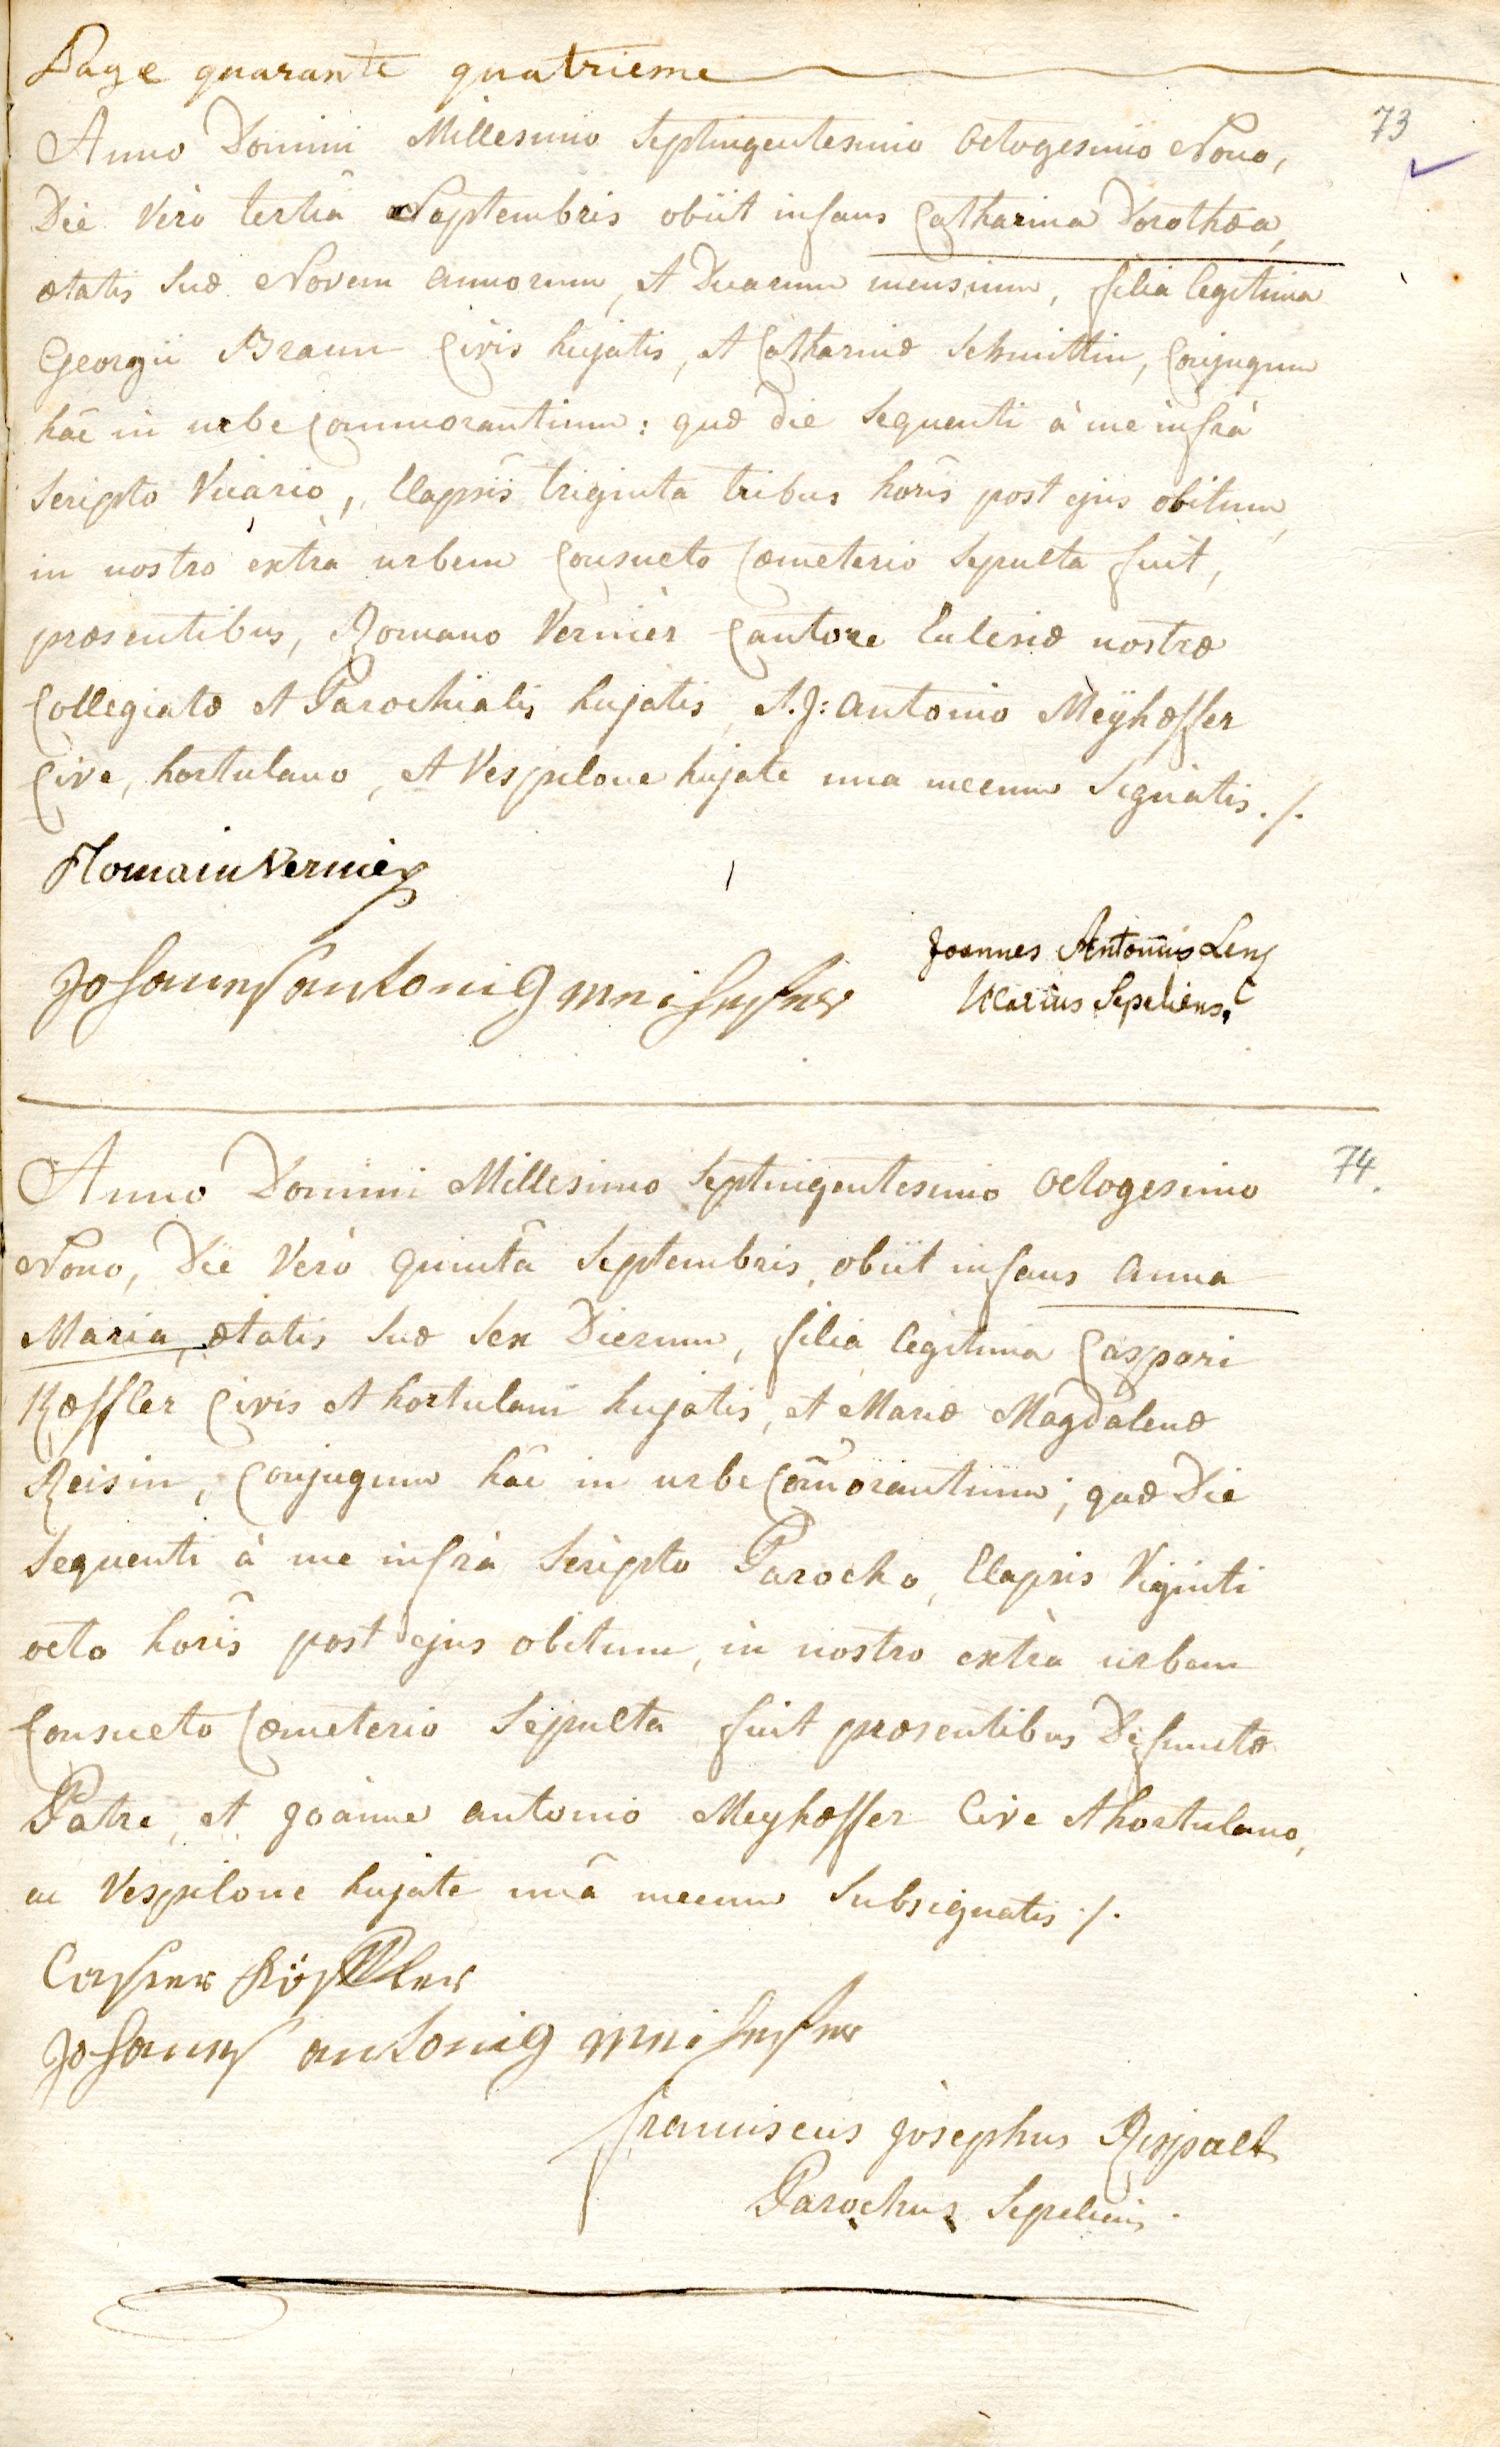 Page quarante quatrieme
73
Anno Domini Millesimo Septingentesimo Octogesimo Nono,
Die Verò tertiâ Septembris obiit infans Catharina Dorothæa,
ætatis Suæ Novem annorum, et Duarum mensium, filia legitima
Georgii Braun Civis hujatis, et Catharinæ Schmittin, Conjugum
hâc in urbe Commorantium: quæ die Sequenti à me infrà
Scripto Vicario, Elapsîs triginta tribus horîs post ejus obitum,
in nostro extrà urbem Consueto Cœmeterio Sepulta fuit,
præsentibus, Romano Vernier Cantore Eclesiæ nostræ
Collegiatæ et Parochialis hujatis, et J: Antonio Meÿhœffer
Cive, hortulano, et Vespilone hujate una mecum Signatis ./.
Romain Vernier
Johannes antonig meihefer
Joannes Antonius Lenz
Vicarius Sepeliens.
74.
Anno Domini Millesimo Septingentesimo Octogesimo
Nono, Die Verò quintâ Septembris, obiit infans Anna
Maria, ætatis Suæ Sex Dierum, filia legitima Caspari
Kœffler Civis et hortulani hujatis, et Mariæ Magdalenæ
Reisin, Conjugum hâc in urbe Com̃orantium; quæ Die
Sequenti à me infrà Scripto Parocho, Elapsis Viginti
octo horîs post ejus obitum, in nostro extrà urbem
Consueto Cœmeterio Sepulta fuit præsentibus Defunctæ
Patre, et Joanne Antonio Meyhœffer Cive et hortulano,
ac Vespilone hujate unâ mecum Subsignatis ./.
Casper
Johannes antonig meihefer
franciscus Josephus Rispalt
Parochus Sepeliens.